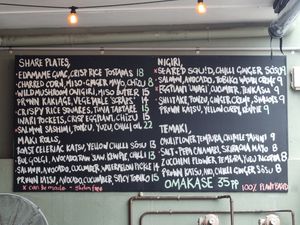 SHARE PLATES,
EDAMAME GUAC, CRISPY RICE TOSTADAS 18
CHARRED CORN, MISO-GINGER MAYO, CHIZU 8
WILD MUSHROOM ONIGIRI, MISO BUTTER 15
PRAWN KAKIAGE, VEGETABLE 'SCRAPS' 14
CRISPY RICE SQUARES, TUNA TARTARE 15
INARI POCKETS, CRISP EGGPLANT, CHIZU 15
SALMON SASHIMI, PONZU, YUZU, CHILLI OIL 22
MAKI ROLLS,
ROAST CELERIAC KATSU, YELLOW CHILLI SOSU 13
BULGOGI, AVOCADO, KIMCHEE 14
SALMON, AVOCADO, CUCUMBER, WATERMELON PICKLE 14
PRAWN KATSU, AVOCADO, CUCUMBER, SPICY TONKATSU 15
X CAN BE MADE
NIGIRI,
SEARED SQUID, CHILLI GINGER SOSU 9
SALMON, AVOCADO, TOBIKO, WASABI CREME 9
EGGPLANT UNAGI, CUCUMBER, TENKASU 9
SHIITAKE, PONZU, GINGER CREMO, 9
PRAWN KATSU, YELLOW CURRY, KEWPIE 9
TEMAKI,
CAULIFLOWER TEMPURA, CHIPOTLE TAHINI 9
SALT + PEPA CALAMARI, SRIRACHA MAYO 8
ZUCCHINI FLOWER TEMPURA, YUZU 8
PRAWN KATSU, AND AVOCADO, CHILLI GINGER SOSU 8
OMAKASE 35PP
100% PLANT BASED